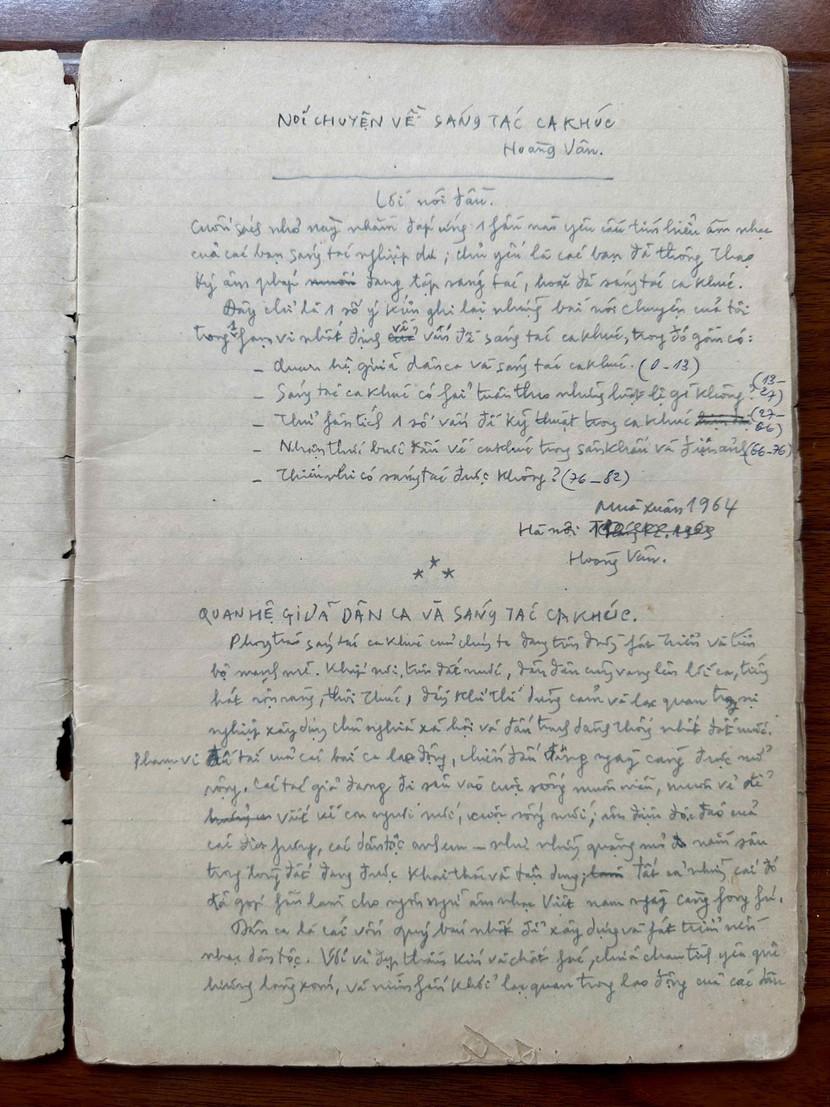 NÓI CHUYỆN VỀ SÁNG TÁC CA KHÚC
Hoàng Vân.
Lời nói đầu.
Cuốn sách nhỏ này nhằm đáp ứng 1 fần nào yêu cầu tìm hiểu âm nhạc
của các bạn sáng tác nghiệp dư ; chủ yếu là các bạn đã thông thạo
ký âm pháp đang tập sáng tác, hoặc đã sáng tác ca khúc.
Đây chỉ là 1 số ý kiến ghi lại những bài nói chuyện của tôi
trong 1 fạm vi nhất định về vấn đề sáng tác ca khúc, trong đó gồm có :
- Quan hệ giữa dân ca và sáng tác ca khúc. (0-13)
- Sáng tác ca khúc có fải tuân theo những luật lệ gì không ? (13-27)
- Thử fân tích 1 số vấn đề kỹ thuật trong ca khúc (27-66)
- Nhận thức bước đầu về ca khúc trong sân khấu và điện ảnh (66-76)
- Thiếu nhi có sáng tác được không ? (76-82)
Mùa xuân 1964
Hà nội
Hoàng Vân.
QUAN HỆ GIỮA DÂN CA VÀ SÁNG TÁC CA KHÚC.
Phong trào sáng tác ca khúc của chúng ta đang trên đường fát triển và tiến
bộ mạnh mẽ. Khắp nơi, trên đất nước, dần dần cũng vang lên lời ca, tiếng
hát rộn ràng, thôi thúc, đầy khí thế dũng cảm và lạc quan trong sự
nghiệp xây dựng chủ nghĩa xã hội và đấu tranh dành thống nhất đất nước.
Phạm vi đề tài của các bài ca lao động, chiến đấu đang ngày càng được mở
rộng. Các tác giả đang đi sâu vào cuộc sống muôn màu, muôn vẻ để
viết về con người mới, cuộc sống mới ; âm điệu độc đáo của
các địa fương, các dân tộc anh em - như những quặng mỏ nằm sâu
trong lòng đất đang được khai thác và tận dụng ; Tất cả những cái đó
đã góp fần làm cho ngôn ngữ âm nhạc Việt nam ngày càng fong fú.
Dân ca là cái vốn quý báu nhất để xây dựng và fát triển nền
nhạc dân tộc. Với vẻ đẹp thầm kín và chất fác, chứa chan tình yêu quê
hương làng xóm, và niềm fấn khởi lạc quan trong lao động của các dân